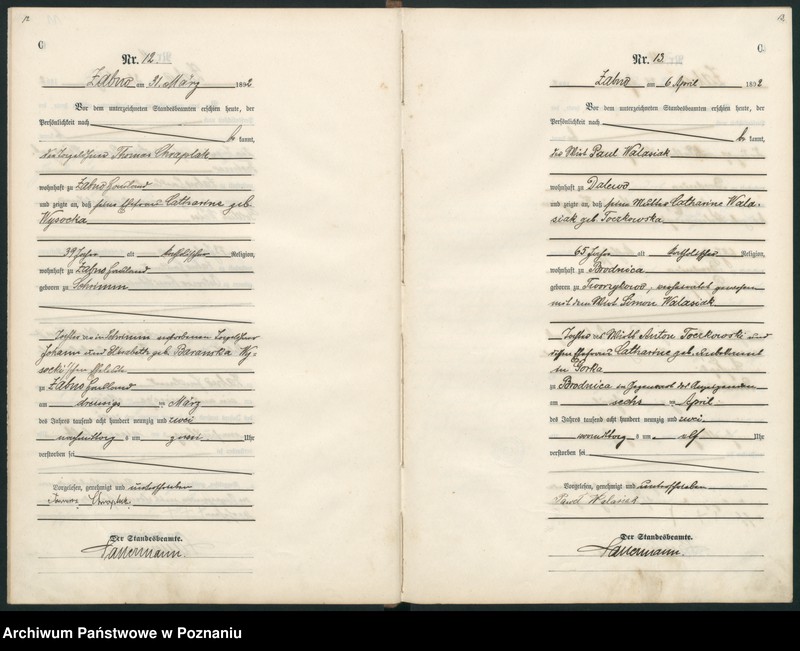 12
C
Nr. 12
Zabno am 21. März 1892
Vor dem unterzeichneten Standesbeamten erschien heute, der
Persönlichkeit nach
be kannt,
Thomas Chraplak
wohnhaft zu Zabno Hauland
und zeigte an, daß seine Ehefrau Catharina geb.
Wysocka
39 Jahre alt katholischer Religion,
wohnhaft zu Zabno Hauland
geboren zu Schrimm
Tochter in Schrimm verstorbenen
Johann und Elisabeth geb. Baranska Wy-
socki'schen Eheleute
zu Zabno Hauland
am ten März
des Jahres tausend acht hundert neunzig und zwei
nachmittag s um zwei Uhr
verstorben sei
Vorgelesen, genehmigt und unterschrieben
Tomas Chraplak
Der Standesbeamte.
13
C.
Nr. 13
Zabno am 6 April 1892
Vor dem unterzeichneten Standesbeamten erschien heute, der
Persönlichkeit nach
be kannt,
der Wirt Paul Walasiak
wohnhaft zu Dalewo
und zeigte an, daß seine Mutter Catharine Wala-
siak geb. Toczkowska
65 Jahre alt katholischer Religion,
wohnhaft zu Brodnica
geboren zu verheirathet gewesen
mit dem Wirt Simon Walasiak
Tochter des Wirth Anton Toczkowski und
dessen Ehefrau Catharine geb. unbekannt
in Gorka
zu Brodnica in Gegenwart des Anzeigenden
am sechs ten April
des Jahres tausend acht hundert neunzig und zwei
vormittag s um elf Uhr
verstorben sei
Vorgelesen, genehmigt und unterschrieben
Paweł Walasiak
Der Standesbeamte.
Archiwum Państwowe w Poznaniu